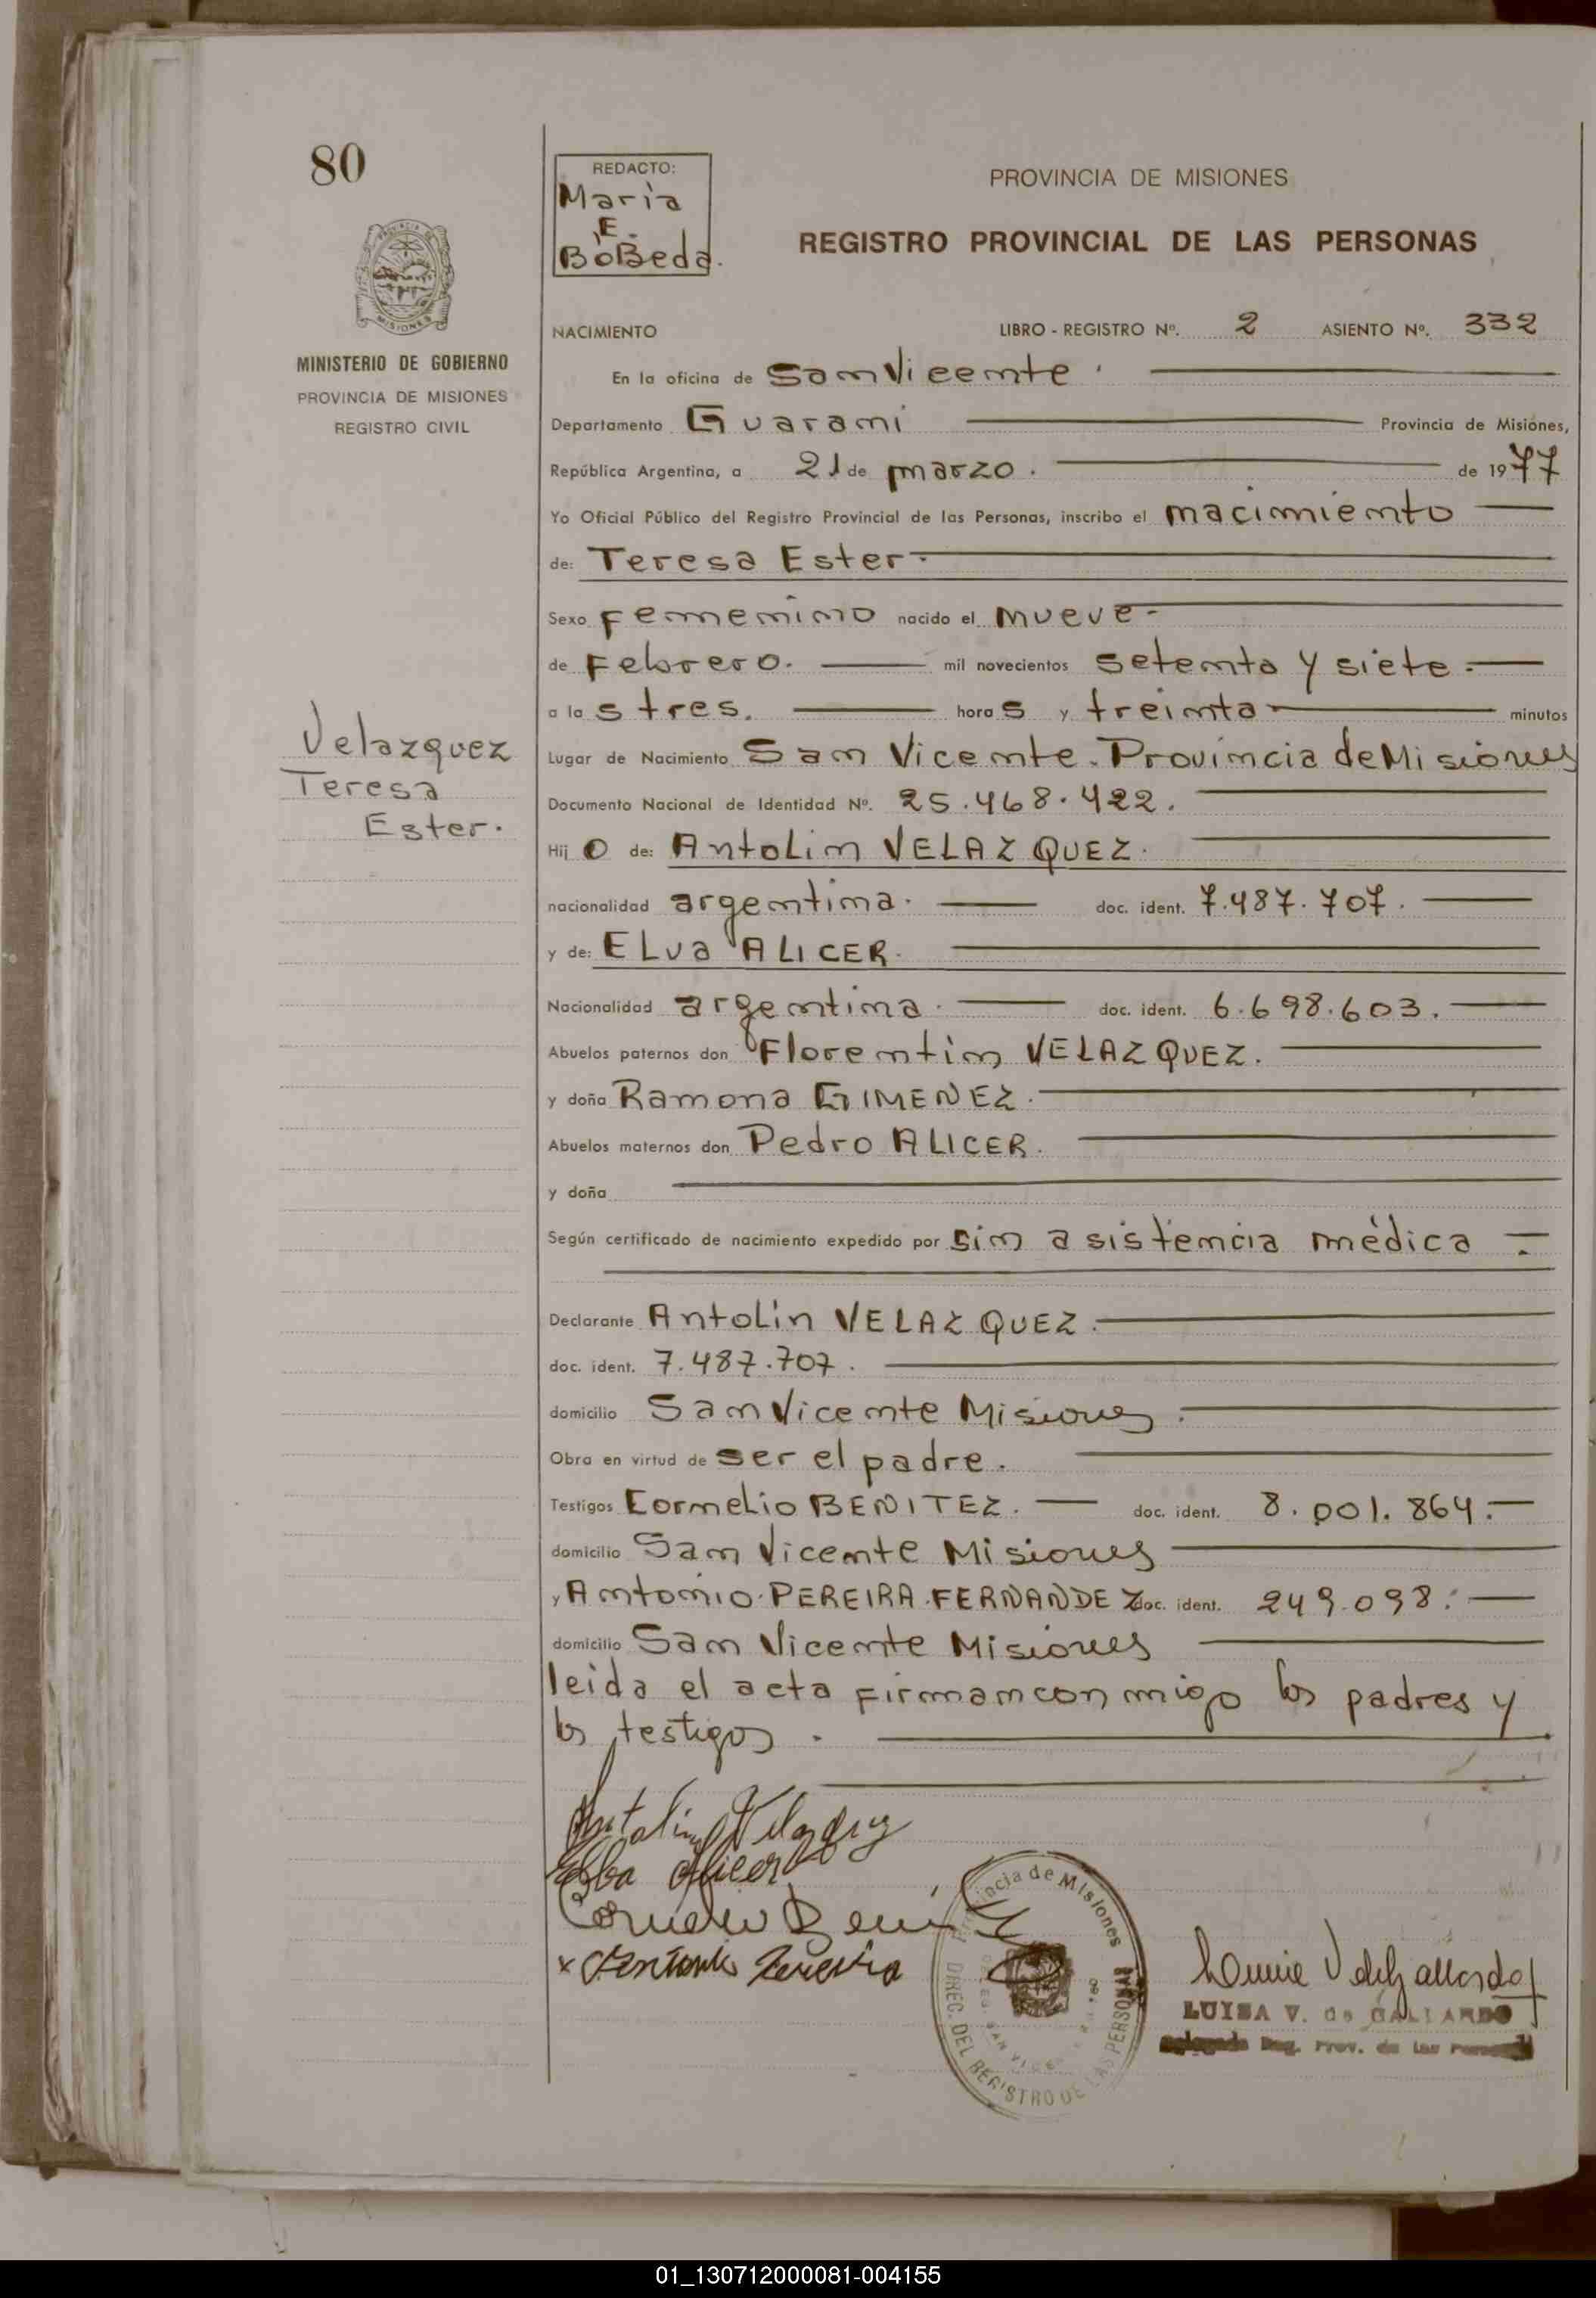 80
REDACTO:
María
E.
BoBeda.
PROVINCIA DE MISIONES
REGISTRO PROVINCIAL DE LAS PERSONAS
MISIONES
MINISTERIO DE GOBIERNO
PROVINCIA DE MISIONES
REGISTRO CIVIL
NACIMIENTO LIBRO - REGISTRO Nº. 2 ASIENTO Nº. 332
En la oficina de San Vicente.
Departamento Guarani Provincia de Misiones,
República Argentina, a 21 de marzo. de 1977
Yo Oficial Público del Registro Provincial de las Personas, inscribo el nacimiento
de: Teresa Ester.
Sexo Femenino nacido el nueve
de Febrero. mil novecientos setenta y siete.
a las tres. horas y treinta minutos
Lugar de Nacimiento San Vicente. Provincia de Misiones
Documento Nacional de Identidad Nº. 25.468.422.
Hijo de: Antolin VELAZQUEZ.
nacionalidad argentina. doc. ident. 7.487.707.
y de: ELva ALICER.
Nacionalidad argentina. doc. ident. 6.698.603.
Abuelos paternos don Florentin VELAZQUEZ.
y doña Ramona GIMENEZ.
Abuelos maternos don Pedro ALICER.
y doña
Según certificado de nacimiento expedido por sin asistencia médica
Declarante Antolin VELAZQUEZ.
doc. ident. 7.487.707.
domicilio San Vicente Misiones.
Obra en virtud de ser el padre.
Testigos Cornelio BENITEZ. doc. ident. 8.001.864.
domicilio San Vicente Misiones
y Antonio PEREIRA FERNANDEZ doc. ident. 249.098.
domicilio San Vicente Misiones
leida el acta firman conmigo los padres y
los testigos.
Velazquez
Teresa
Ester.
Antolin Velazquez
Elba Alicer
Cornelio Benitez
x Antonio Pereira
Provincia de Misiones
DIREC. DEL REGISTRO DE LAS PERSONAS
LUISA V. de GALLARDO
Delegada Reg. Prov. de las Personas
01_130712000081-004155